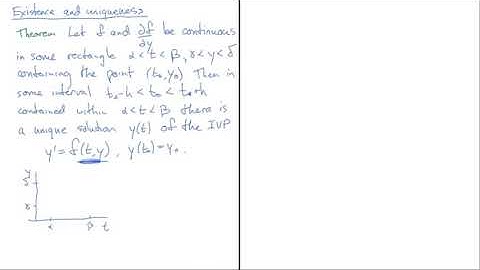 Existence and uniqueness
Theorem Let f and ∂f/∂y be continuous
in some rectangle α<t<β, γ<y<δ
containing the point (t₀,y₀) Then in
some interval t₀-h<t₀<t₀+h
contained within α<t<β there is
a unique solution y(t) of the IVP
y'=f(t,y), y(t₀)=y₀.
y
δ
γ
α β t